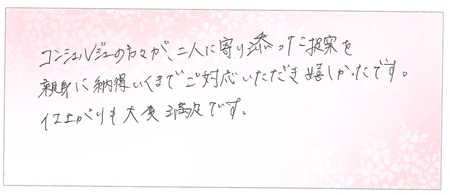 コンシェルジュの方々が、二人に寄り添ったご提案を
親身に納得いくまでご対応いただき嬉しかったです。
仕上がりも大変満足です。